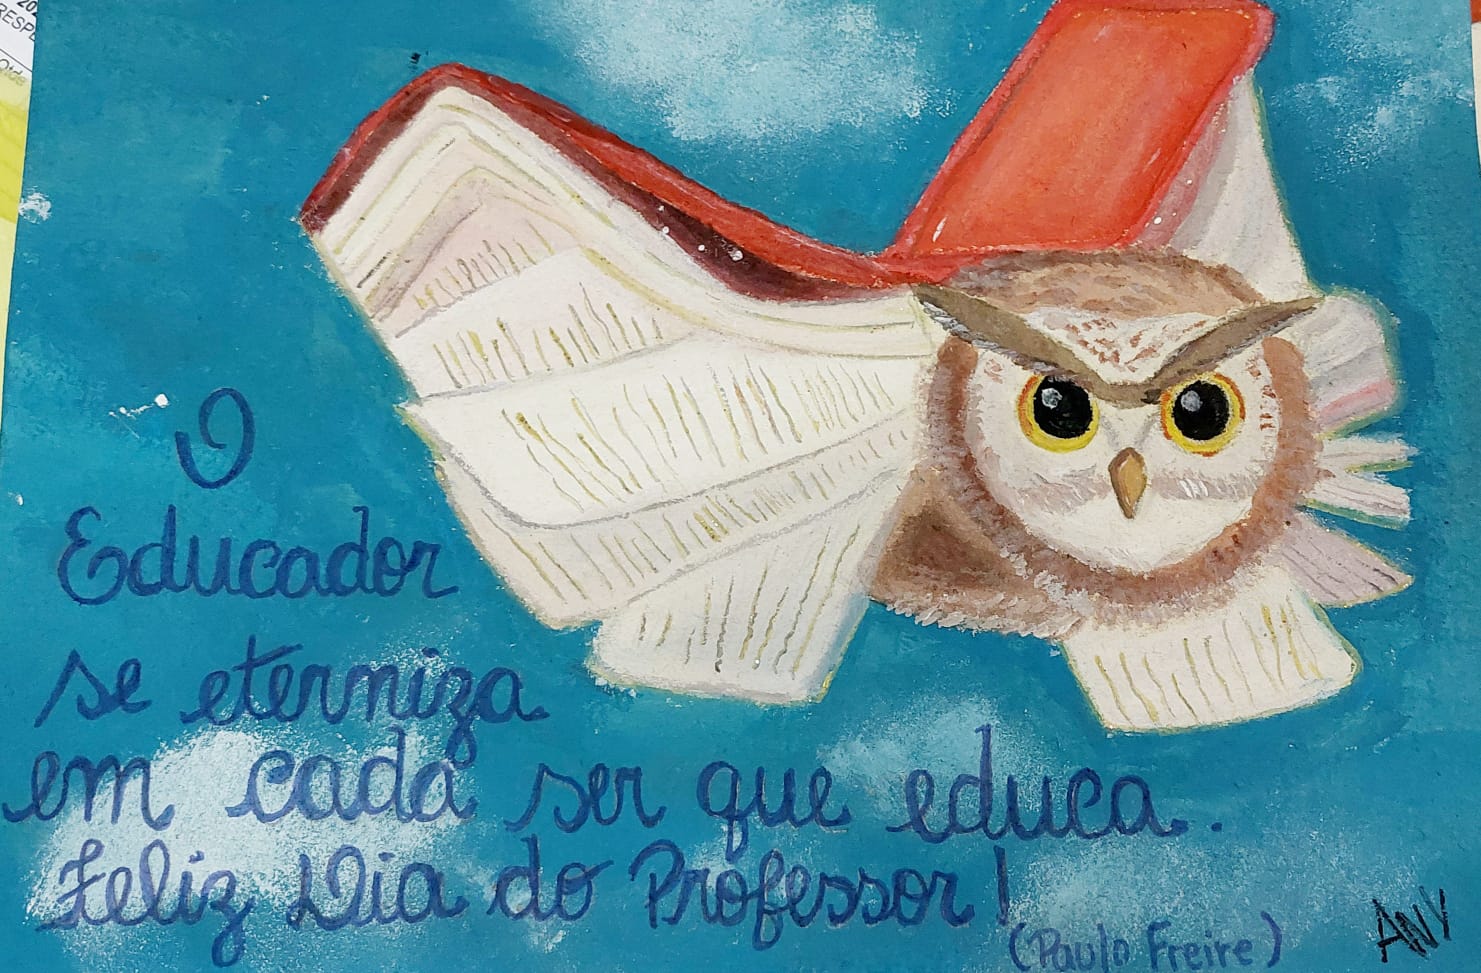 O
Educador
se eterniza
em cada ser que educa..
Feliz Dia do Professor!
(Paulo Freire)
ANY